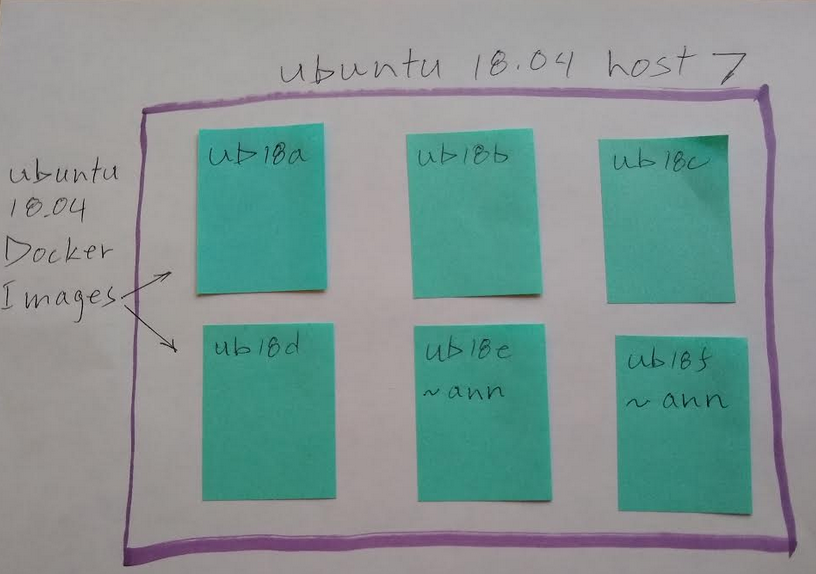 ubuntu 18.04 host 7
ubuntu
18.04
Docker
Images
ub18a
ub18b
ub18c
ub18d
ub18e
~ann
ub18f
~ann